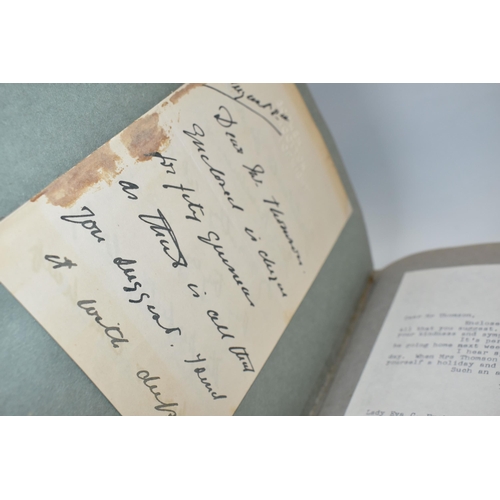 August
Dear Mr. Thomson.
Enclosed is cheque
for fifty guineas
as that is all that
you suggest. Your
it with
Dear Mr Thomson,
Enclose
all that you suggest.
your kindness and sym
It's par
be going home next we
I hear
day. When Mrs Thomson
yourself a holiday and
Such an a
Lady Eve C.